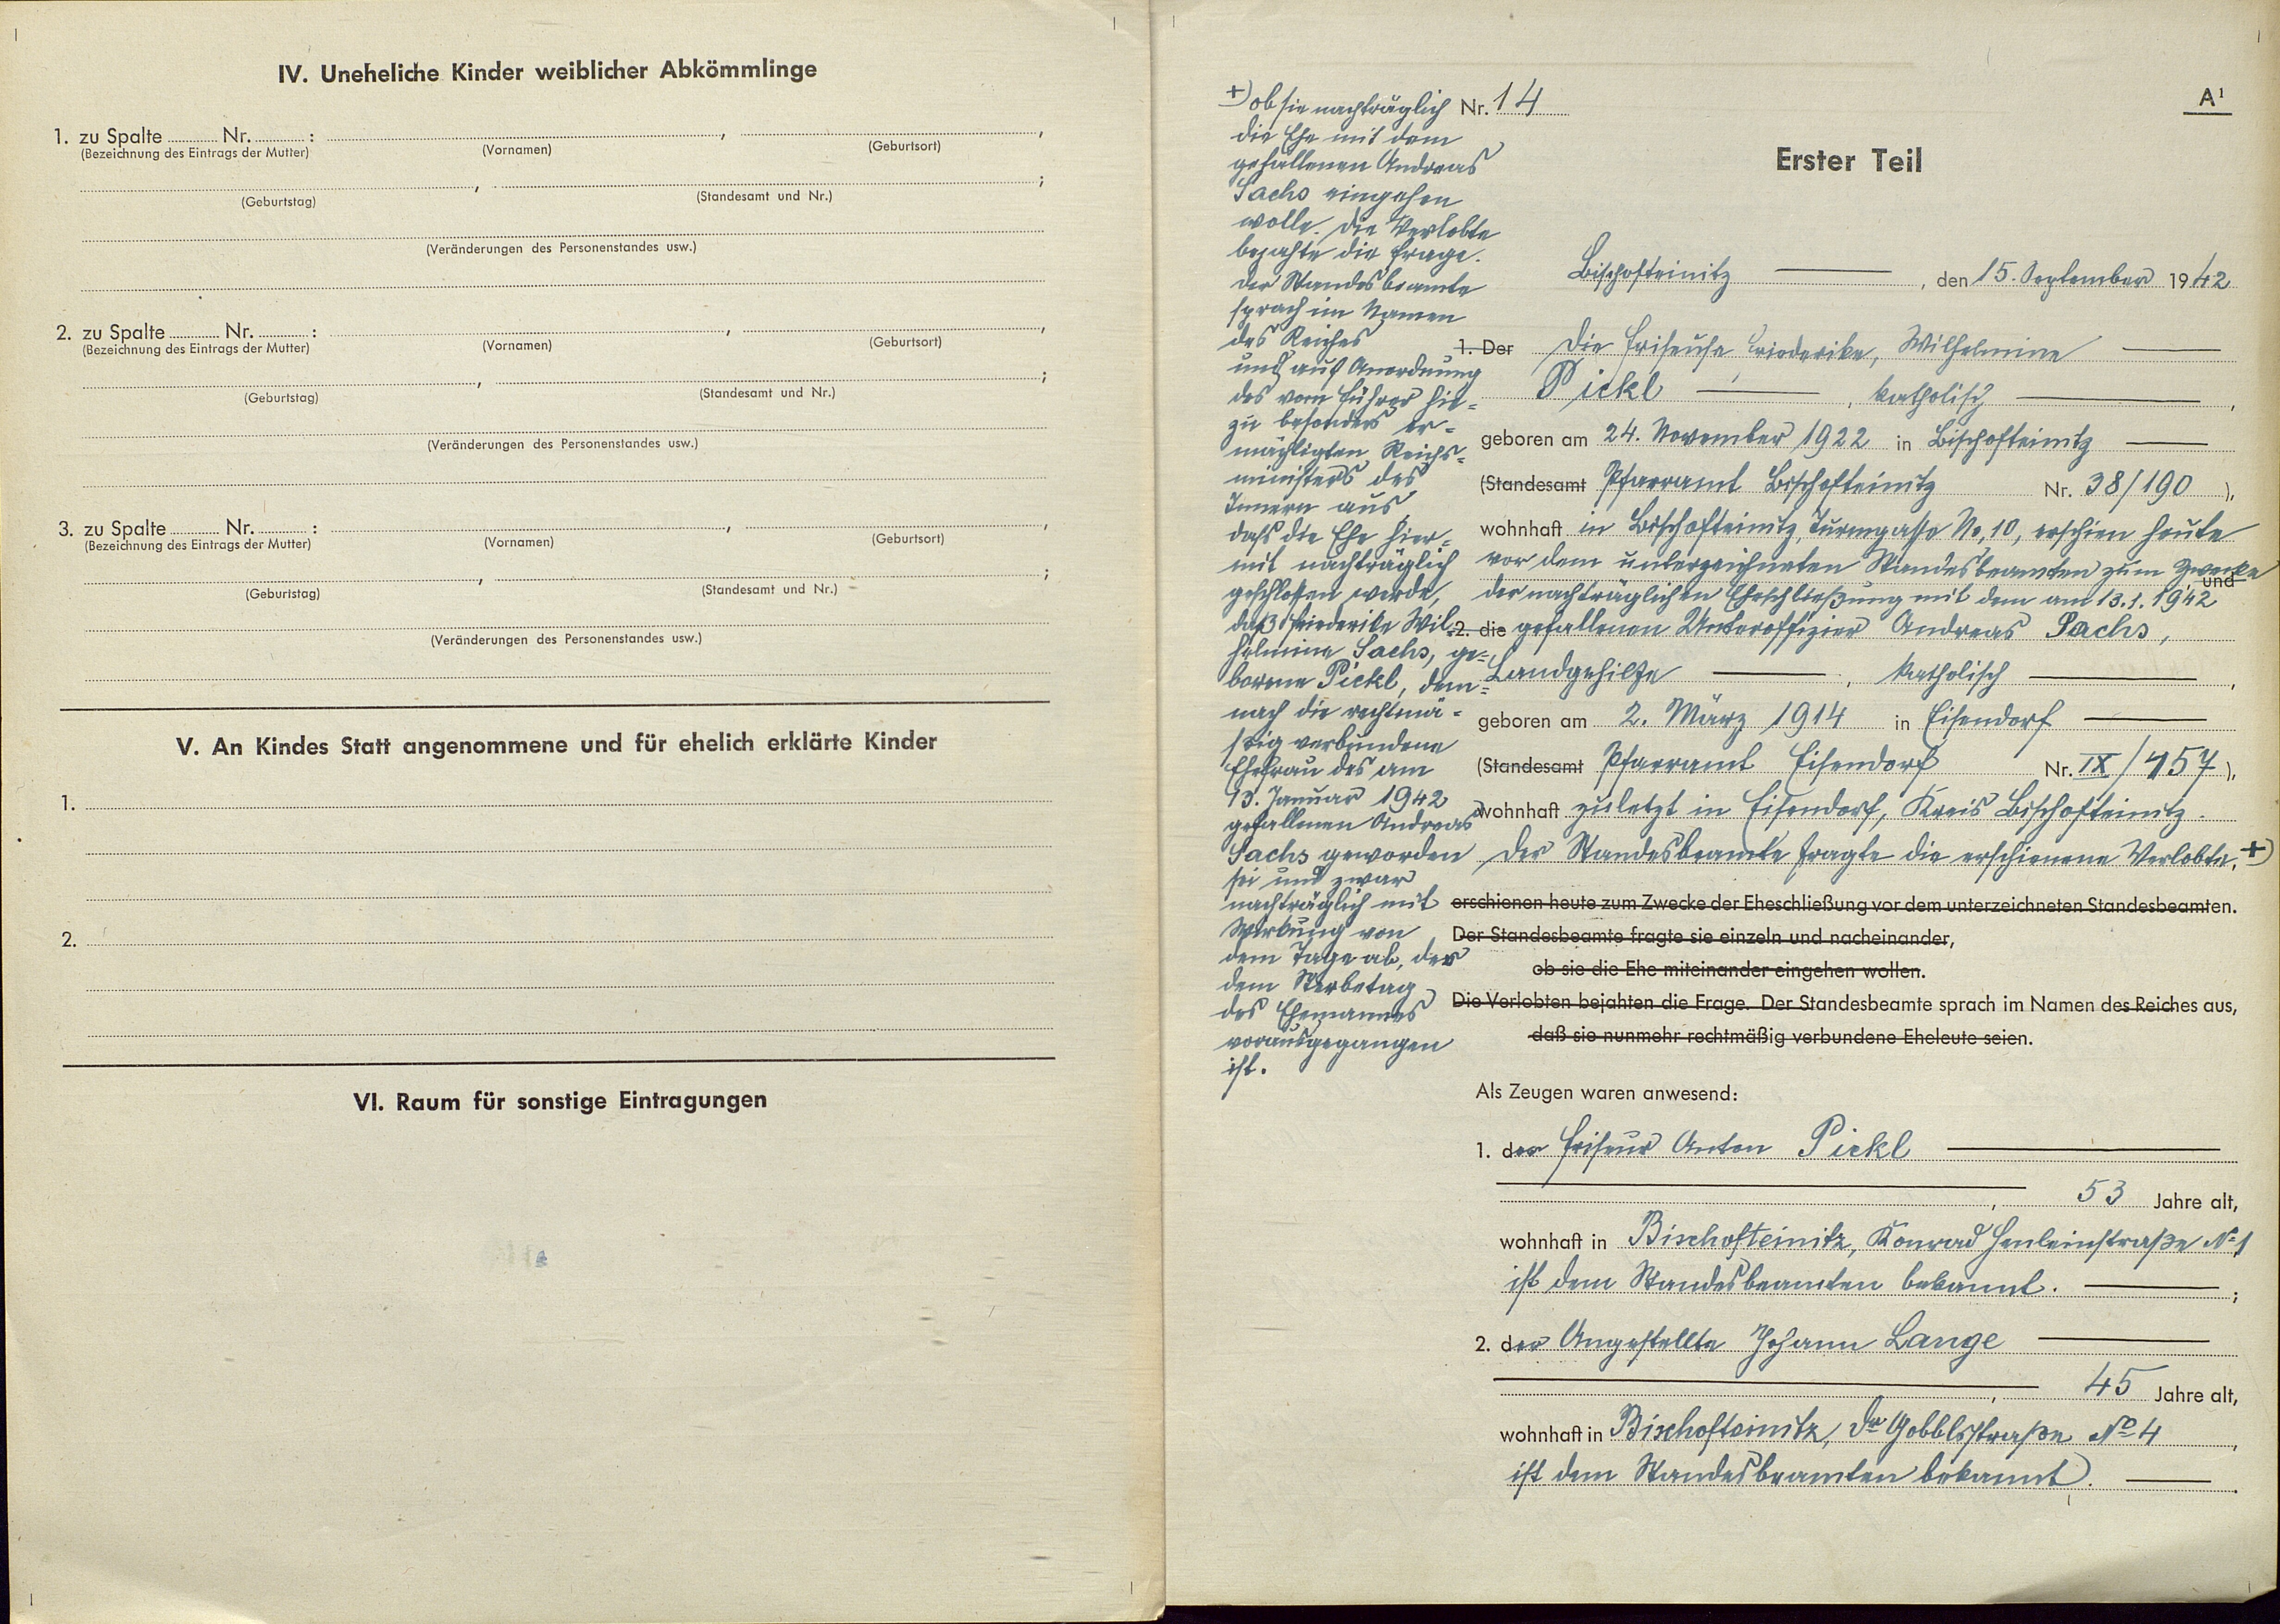 IV. Uneheliche Kinder weiblicher Abkömmlinge
1. zu Spalte ........ Nr. ........ : , ,
(Bezeichnung des Eintrags der Mutter) (Vornamen) (Geburtsort)
, ;
(Geburtstag) (Standesamt und Nr.)
(Veränderungen des Personenstandes usw.)
2. zu Spalte ........ Nr. ........ : , ,
(Bezeichnung des Eintrags der Mutter) (Vornamen) (Geburtsort)
, ;
(Geburtstag) (Standesamt und Nr.)
(Veränderungen des Personenstandes usw.)
3. zu Spalte ........ Nr. ........ : , ,
(Bezeichnung des Eintrags der Mutter) (Vornamen) (Geburtsort)
, ;
(Geburtstag) (Standesamt und Nr.)
(Veränderungen des Personenstandes usw.)
V. An Kindes Statt angenommene und für ehelich erklärte Kinder
1.
2.
VI. Raum für sonstige Eintragungen
+) ob sie nachträglich
die Ehe mit dem
gefallenen Andreas
Sachs eingehen
wolle. Die Verlobte
bejahte die Frage.
Der Standesbeamte
sprach im Namen
des Reiches
und auf Anordnung
des vom Führer hie-
zu besonders er-
mächtigten Reichs-
ministers des
Innern aus,
daß die Ehe hier-
mit nachträglich
geschlossen werde,
daß Friederike Wil-
helmine Sachs, ge-
borene Pickl, dem-
nach die rechtmä-
ßig verbundene
Ehefrau des am
13. Januar 1942
gefallenen Andreas
Sachs geworden
sei und zwar
nachträglich mit
Wirkung von
dem Tage ab, der
dem Sterbetag
des Ehemannes
vorausgegangen
ist.
Nr. 14
A1
Erster Teil
Bischofteinitz , den 15. September 1942
1. Der Die Friseuse Friederike, Wilhelmine
Pickl , katholisch ,
geboren am 24. November 1922 in Bischofteinitz
(Standesamt Pfarramt Bischofteinitz Nr. 38/190 ),
wohnhaft in Bischofteinitz, Turmgasse No. 10, erschien heute
vor dem unterzeichneten Standesbeamten zum Zwecke
und
der nachträglichen Eheschließung mit dem am 13.1.1942
2. die gefallenen Unteroffizier Andreas Sachs,
Landgehilfe , katholisch ,
geboren am 2. März 1914 in Eisendorf
(Standesamt Pfarramt Eisendorf Nr. IX/157 ),
wohnhaft zuletzt in Eisendorf, Kreis Bischofteinitz.
Der Standesbeamte fragte die erschienene Verlobte, +)
erschienen heute zum Zwecke der Eheschließung vor dem unterzeichneten Standesbeamten.
Der Standesbeamte fragte sie einzeln und nacheinander,
ob sie die Ehe miteinander eingehen wollen.
Die Verlobten bejahten die Frage. Der Standesbeamte sprach im Namen des Reiches aus,
daß sie nunmehr rechtmäßig verbundene Eheleute seien.
Als Zeugen waren anwesend:
1. der Friseur Anton Pickl
, 53 Jahre alt,
wohnhaft in Bischofteinitz, Konrad Henleinstraße No 1
ist dem Standesbeamten bekannt. ;
2. der Angestellte Johann Lange
, 45 Jahre alt,
wohnhaft in Bischofteinitz, Dr Göbblsstraße No 4 ,
ist dem Standesbeamten bekannt.